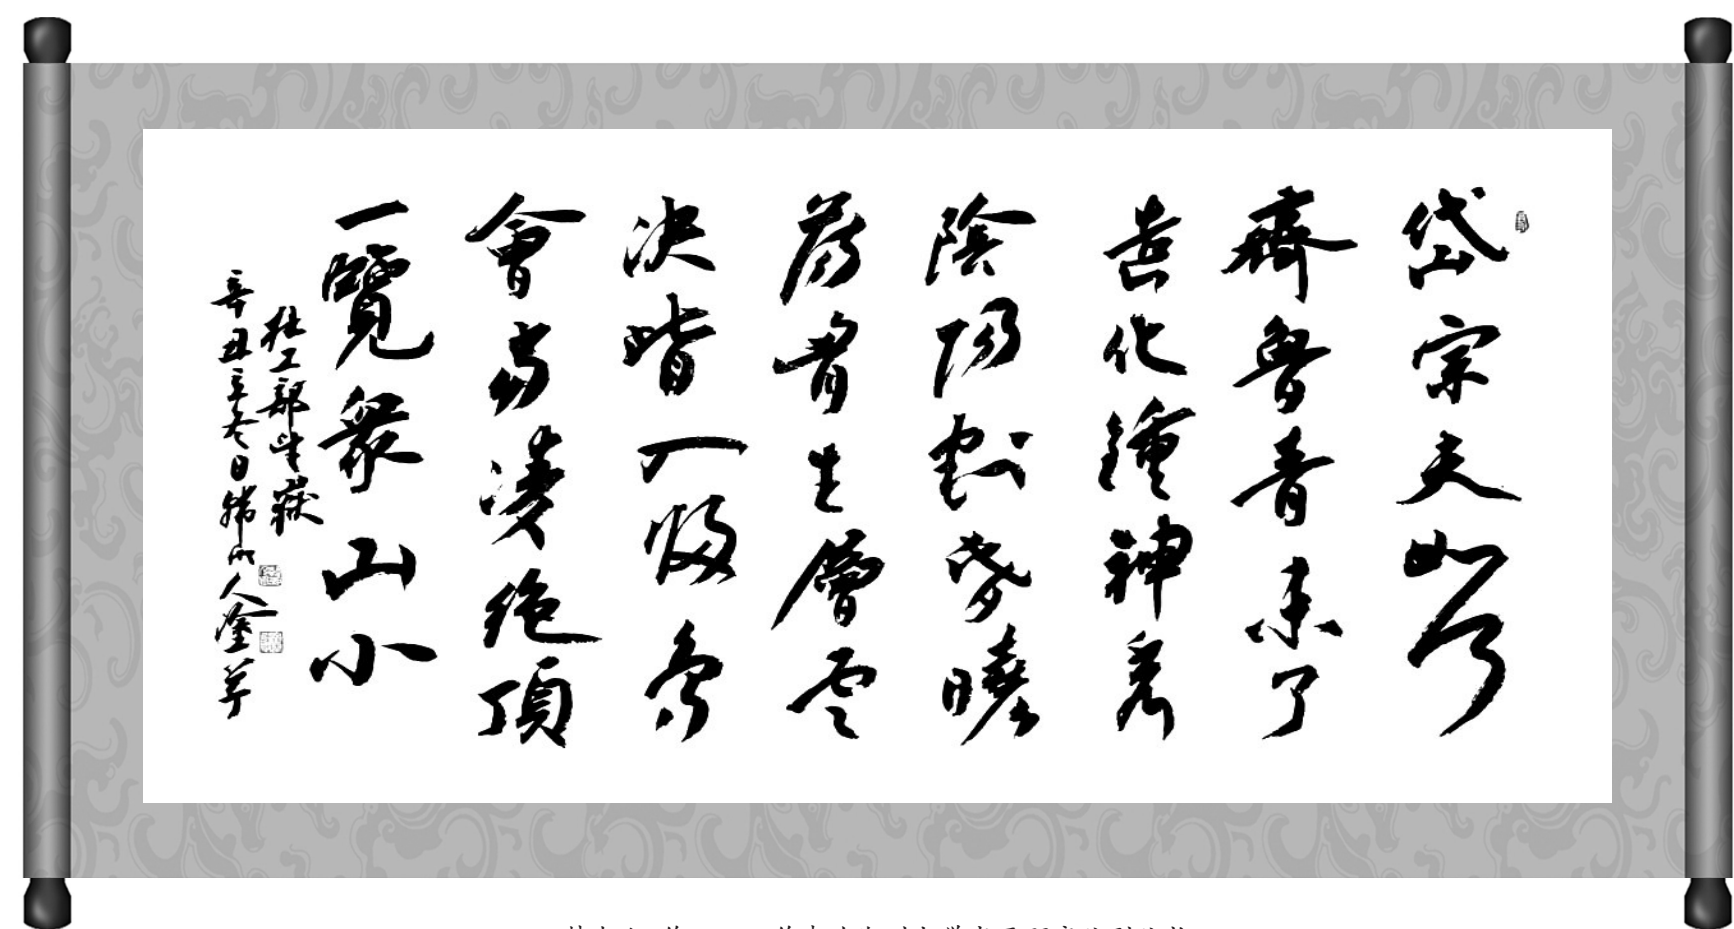 岱宗夫如何
齊魯青未了
造化鍾神秀
陰陽割昏曉
蕩胷生層雲
決眥入歸鳥
會當凌絕頂
一覽衆山小
杜工部望嶽
辛丑立冬日